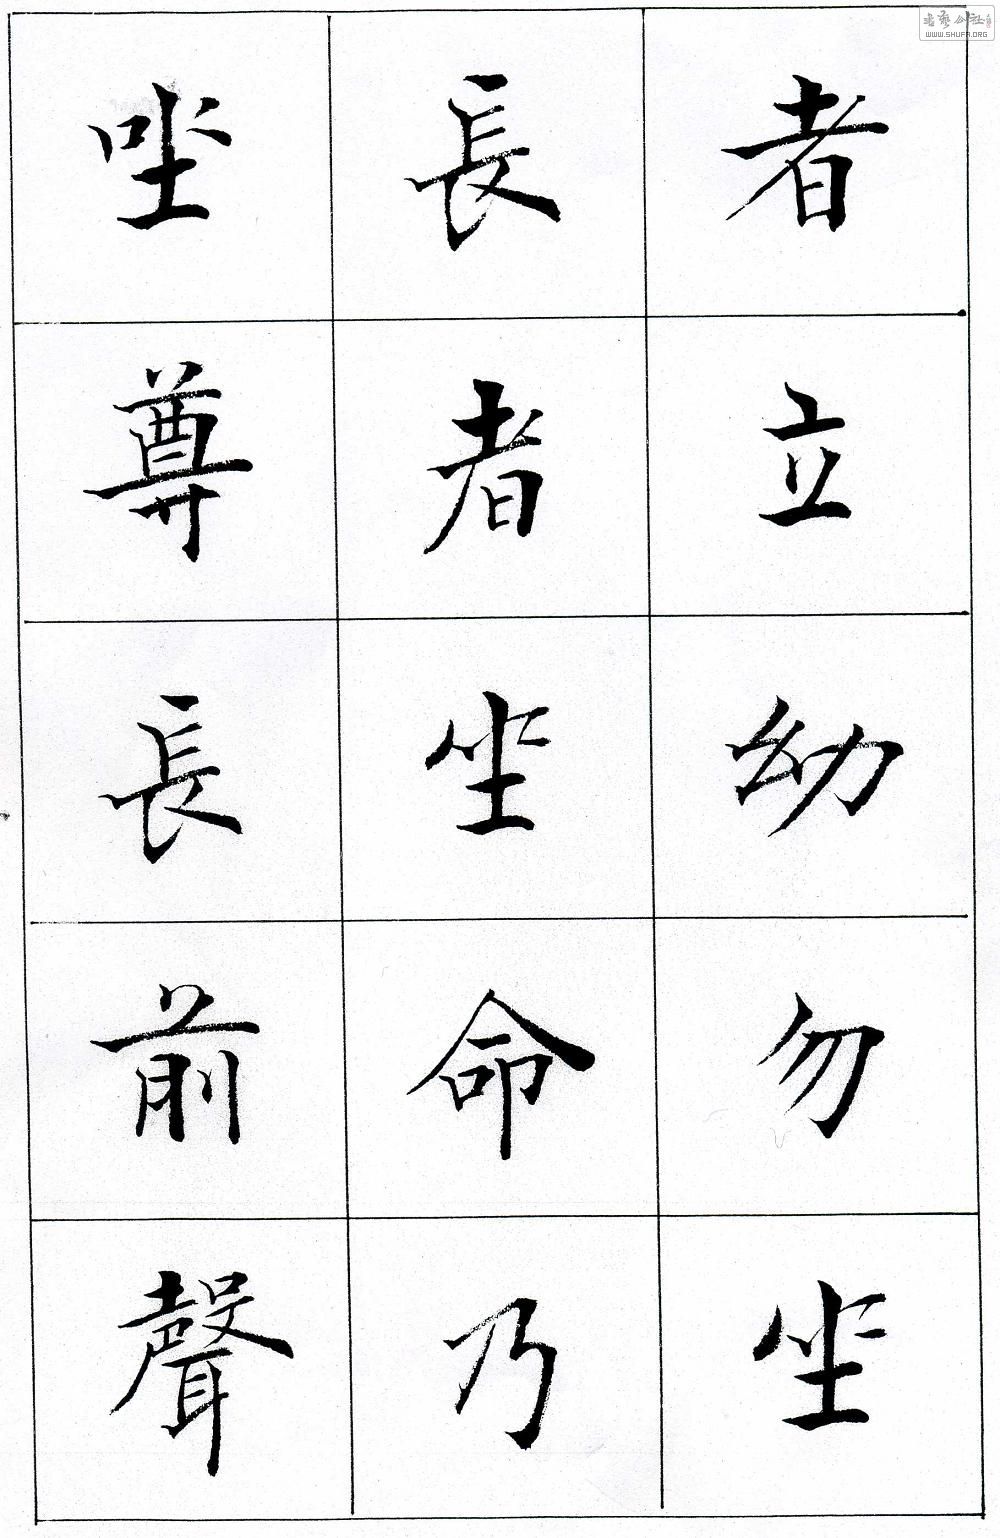 者立幼勿坐
長者坐命乃
坐尊長前聲
WWW.SHUFA.ORG